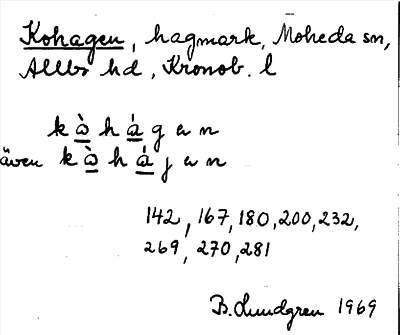 Kohagen, hagmark, Moheda sn,
Allbo hd, Kronob. l
k ò̲ h á̲ g e n
även k ò̲ h á̲ j e n
142, 167, 180, 200, 232,
269, 270, 281
B. Lundgren 1969